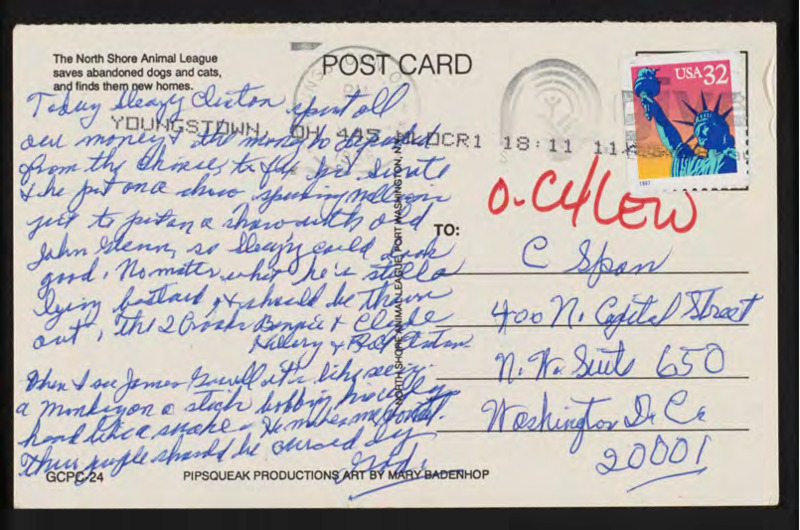 The North Shore Animal League
saves abandoned dogs and cats,
and finds them new homes.
POST CARD
USA 32
1997
YOUNGSTOWN, OH 445 MLOCR1 18:11 11
Today Sleazy Clinton spent all
our money & the money he
from the Chinese, to
& he put on a show spending millions
just to put on a show with old
John Glenn, so Sleazy could look
good. No matter what he's still a
lying bastard & should be thrown
out, the 2 Crooks Bonnie & Clyde
Hillery & Bill Clinton
When I see James it's like seeing
a monkey on a stick bobbing his
head like a snake. He makes me
These people should be cursed by
God.
NORTH SHORE ANIMAL LEAGUE, PORT WASHINGTON, NY
O-C4LEW
TO:
C Span
400 N. Capital Street
N. W. Suite 650
Washington D. C.
20001
GCPC-24
PIPSQUEAK PRODUCTIONS ART BY MARY BADENHOP